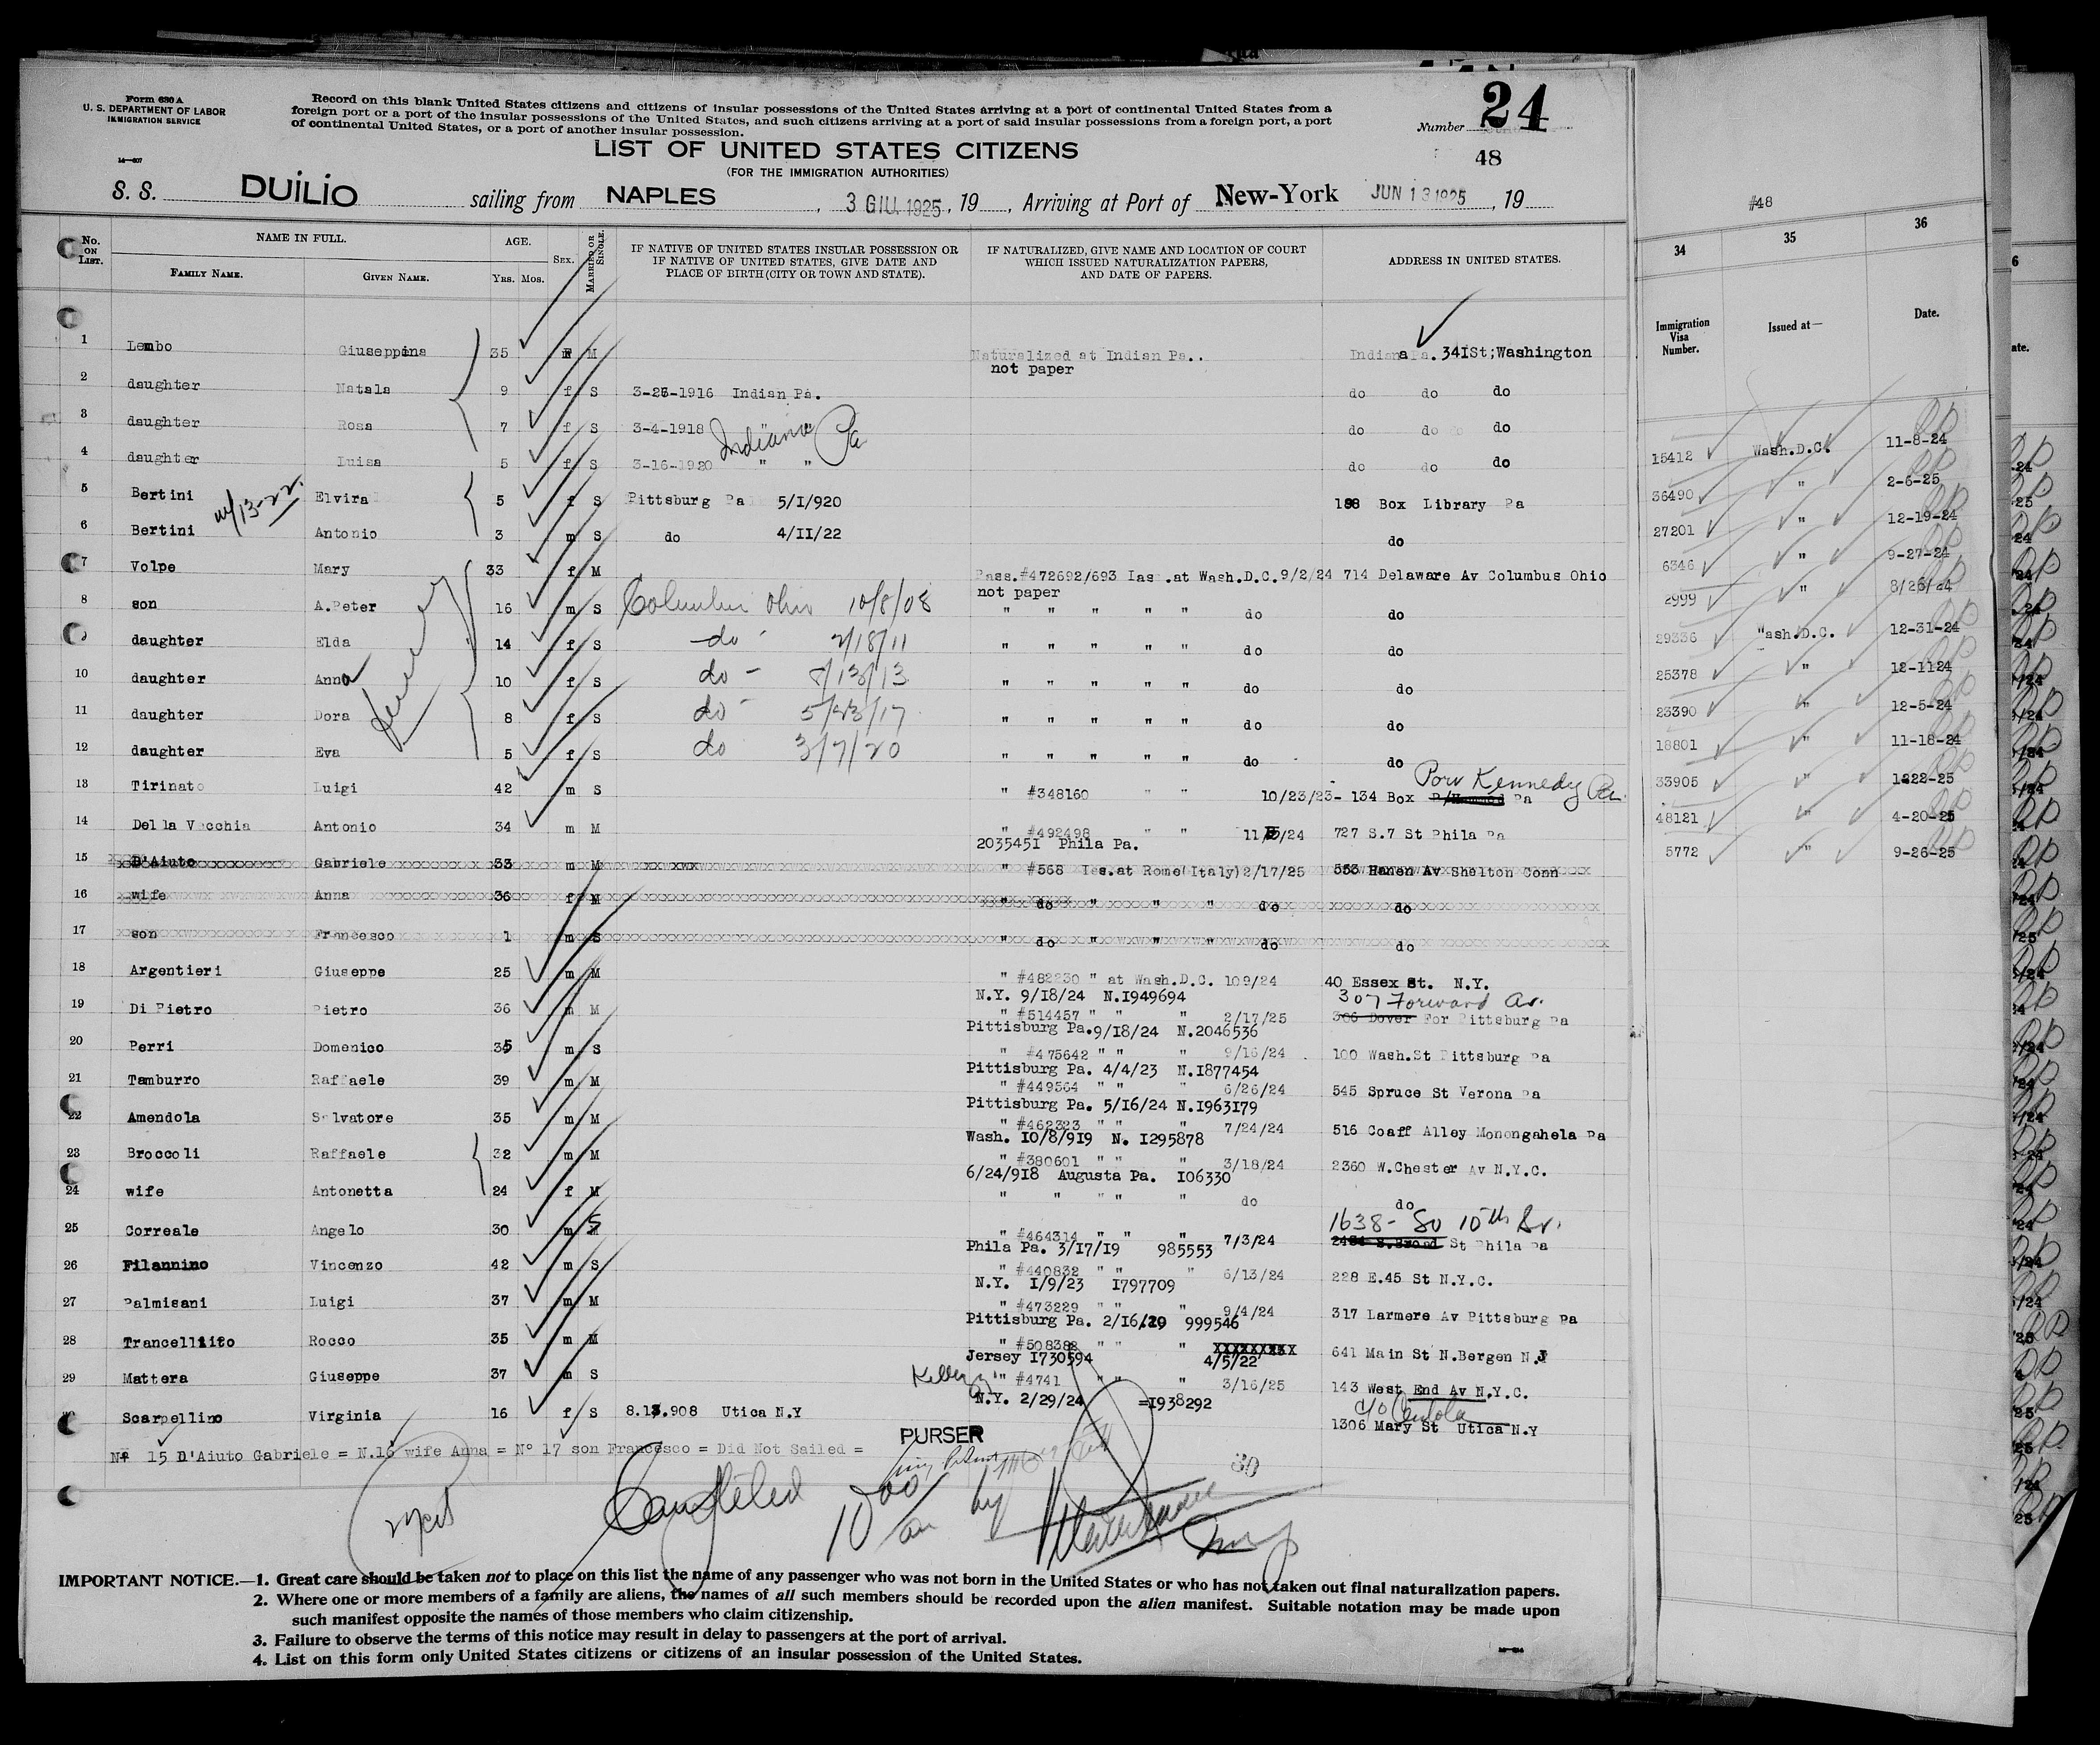 Form 630 A
U. S. DEPARTMENT OF LABOR
IMMIGRATION SERVICE
14—607
Record on this blank United States citizens and citizens of insular possessions of the United States arriving at a port of continental United States from a
foreign port or a port of the insular possessions of the United States, and such citizens arriving at a port of said insular possessions from a foreign port, a port
of continental United States, or a port of another insular possession.
Number 24
48
LIST OF UNITED STATES CITIZENS
(FOR THE IMMIGRATION AUTHORITIES)
S. S. DUiLiO sailing from NAPLES , 3 GIU. 1925, 19 , Arriving at Port of New-York JUN 13 1925 , 19
No. ON LIST. NAME IN FULL. FAMILY NAME. GIVEN NAME. AGE. Yrs. Mos. SEX. MARRIED OR SINGLE. IF NATIVE OF UNITED STATES INSULAR POSSESSION OR IF NATIVE OF UNITED STATES, GIVE DATE AND PLACE OF BIRTH (CITY OR TOWN AND STATE). IF NATURALIZED, GIVE NAME AND LOCATION OF COURT WHICH ISSUED NATURALIZATION PAPERS, AND DATE OF PAPERS. ADDRESS IN UNITED STATES.
1 Lembo Giuseppina 35 F M Naturalized at Indian Pa.. Indiana Pa. 34ISt;Washington
not paper
2 daughter Natala 9 f S 3-26-1916 Indian Pa. do do do
3 daughter Rosa 7 f S 3-4-1918 " " Indiana Pa do do do
4 daughter Luisa 5 f S 3-16-1920 " " do do do
5 Bertini Elvira 5 f S Pittsburg Pa 5/I/920 198 Box Library Pa
6 Bertini Antonio 3 m S do 4/II/22 do
7 Volpe Mary 33 f M Pass.#472692/693 Iss .at Wash.D.C.9/2/24 714 Delaware Av Columbus Ohio
not paper
8 son A.Peter 16 m S Columbus Ohio 10/8/08 " " " " " do do
9 daughter Elda 14 f S do - 2/18/11 " " " " " do do
10 daughter Anna 10 f S do - 8/13/13 " " " " " do do
11 daughter Dora 8 f S do - 5/23/17 " " " " " do do
12 daughter Eva 5 f S do 3/7/20 " " " " " do do
13 Tirinato Luigi 42 m S " #348160 " " 10/23/23- 134 Box Kennedy Pa. Pa
14 Della Vecchia Antonio 34 m M " #492498 " " 11 /24 727 S.7 St Phila Pa
203545I Phila Pa.
15 D'Aiuto Gabriele 33 m M " #568 Iss.at Rome(Italy)2/17/25 553 Hanen Av Shelton Conn
16 wife Anna 36 f M " do " " " do do
17 son Francesco 1 m S " do " " " do do
18 Argentieri Giuseppe 25 m M " #482230 " at Wash.D.C. 109/24 40 Essex St. N.Y.
N.Y. 9/18/24 N.I949694
307 Forward Av.
19 Di Pietro Pietro 36 m M " #514457 " " " 2/17/25 306 Dover For Pittsburg Pa
Pittisburg Pa.9/18/24 N.2046536
20 Perri Domenico 35 m S " #475642 " " " 9/16/24 100 Wash.St Pittsburg Pa
Pittisburg Pa. 4/4/23 N.I877454
21 Tamburro Raffaele 39 m M " #449564 " " " 6/26/24 545 Spruce St Verona Pa
Pittisburg Pa. 5/I6/24 N.I963I79
22 Amendola Salvatore 35 m M " #462323 " " " 7/24/24 516 Coaff Alley Monongahela Pa
Wash. I0/8/9I9 N. I295878
23 Broccoli Raffaele 32 m M " #380601 " " " 3/18/24 2360 W.Chester Av N.Y.C.
6/24/9I8 Augusta Pa. I06330
24 wife Antonetta 24 f M " " " " " do do
1638- So 10th St.
25 Correale Angelo 30 m S " #464314 " " " 7/3/24 St Phila Pa
Phila Pa. 3/I7/I9 985553
26 Filannino Vincenzo 42 m S " #440832 " " " 6/13/24 228 E.45 St N.Y.C.
N.Y. I/9/23 I797709
27 Palmisani Luigi 37 m M " #473229 " " " 9/4/24 317 Larmere Av Pittsburg Pa
Pittisburg Pa. 2/I6/29 999546
28 Rocco 35 m M " #508388 " " " XXXXXXXX 641 Main St N.Bergen N.J
Jersey I730594 4/5/22
29 Mattera Giuseppe 37 m S " #4741 " " " 3/16/25 143 West End Av N.Y.C.
N.Y. 2/29/24 =I938292
c/o
Scarpellino Virginia 16 f S 8.13.908 Utica N.Y 1306 Mary St Utica N.Y
Nº 15 D'Aiuto Gabriele = N.16 wife Anna = Nº 17 son Francesco = Did Not Sailed =
PURSER
30
10 00/ an by
IMPORTANT NOTICE.—1. Great care should be taken not to place on this list the name of any passenger who was not born in the United States or who has not taken out final naturalization papers.
2. Where one or more members of a family are aliens, the names of all such members should be recorded upon the alien manifest. Suitable notation may be made upon
such manifest opposite the names of those members who claim citizenship.
3. Failure to observe the terms of this notice may result in delay to passengers at the port of arrival.
4. List on this form only United States citizens or citizens of an insular possession of the United States.
#48
34 35 36
Immigration Visa Number. Issued at— Date.
15412 Wash.D.C. 11-8-24
36490 " 2-6-25
27201 " 12-19-24
6346 " 9-27-24
2999 " 8/26/24
29336 Wash.D.C. 12-31-24
25378 " 12-1124
23390 " 12-5-24
18801 " 11-18-24
33905 " 1222-25
48121 " 4-20-25
5772 " 9-26-25